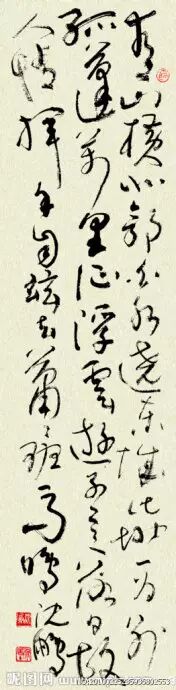 青山橫北郭白水遶東城此地一為別
孤蓬萬里征浮雲遊子意落日故
人情揮手自茲去蕭々班馬鳴沈鵬
昵图网